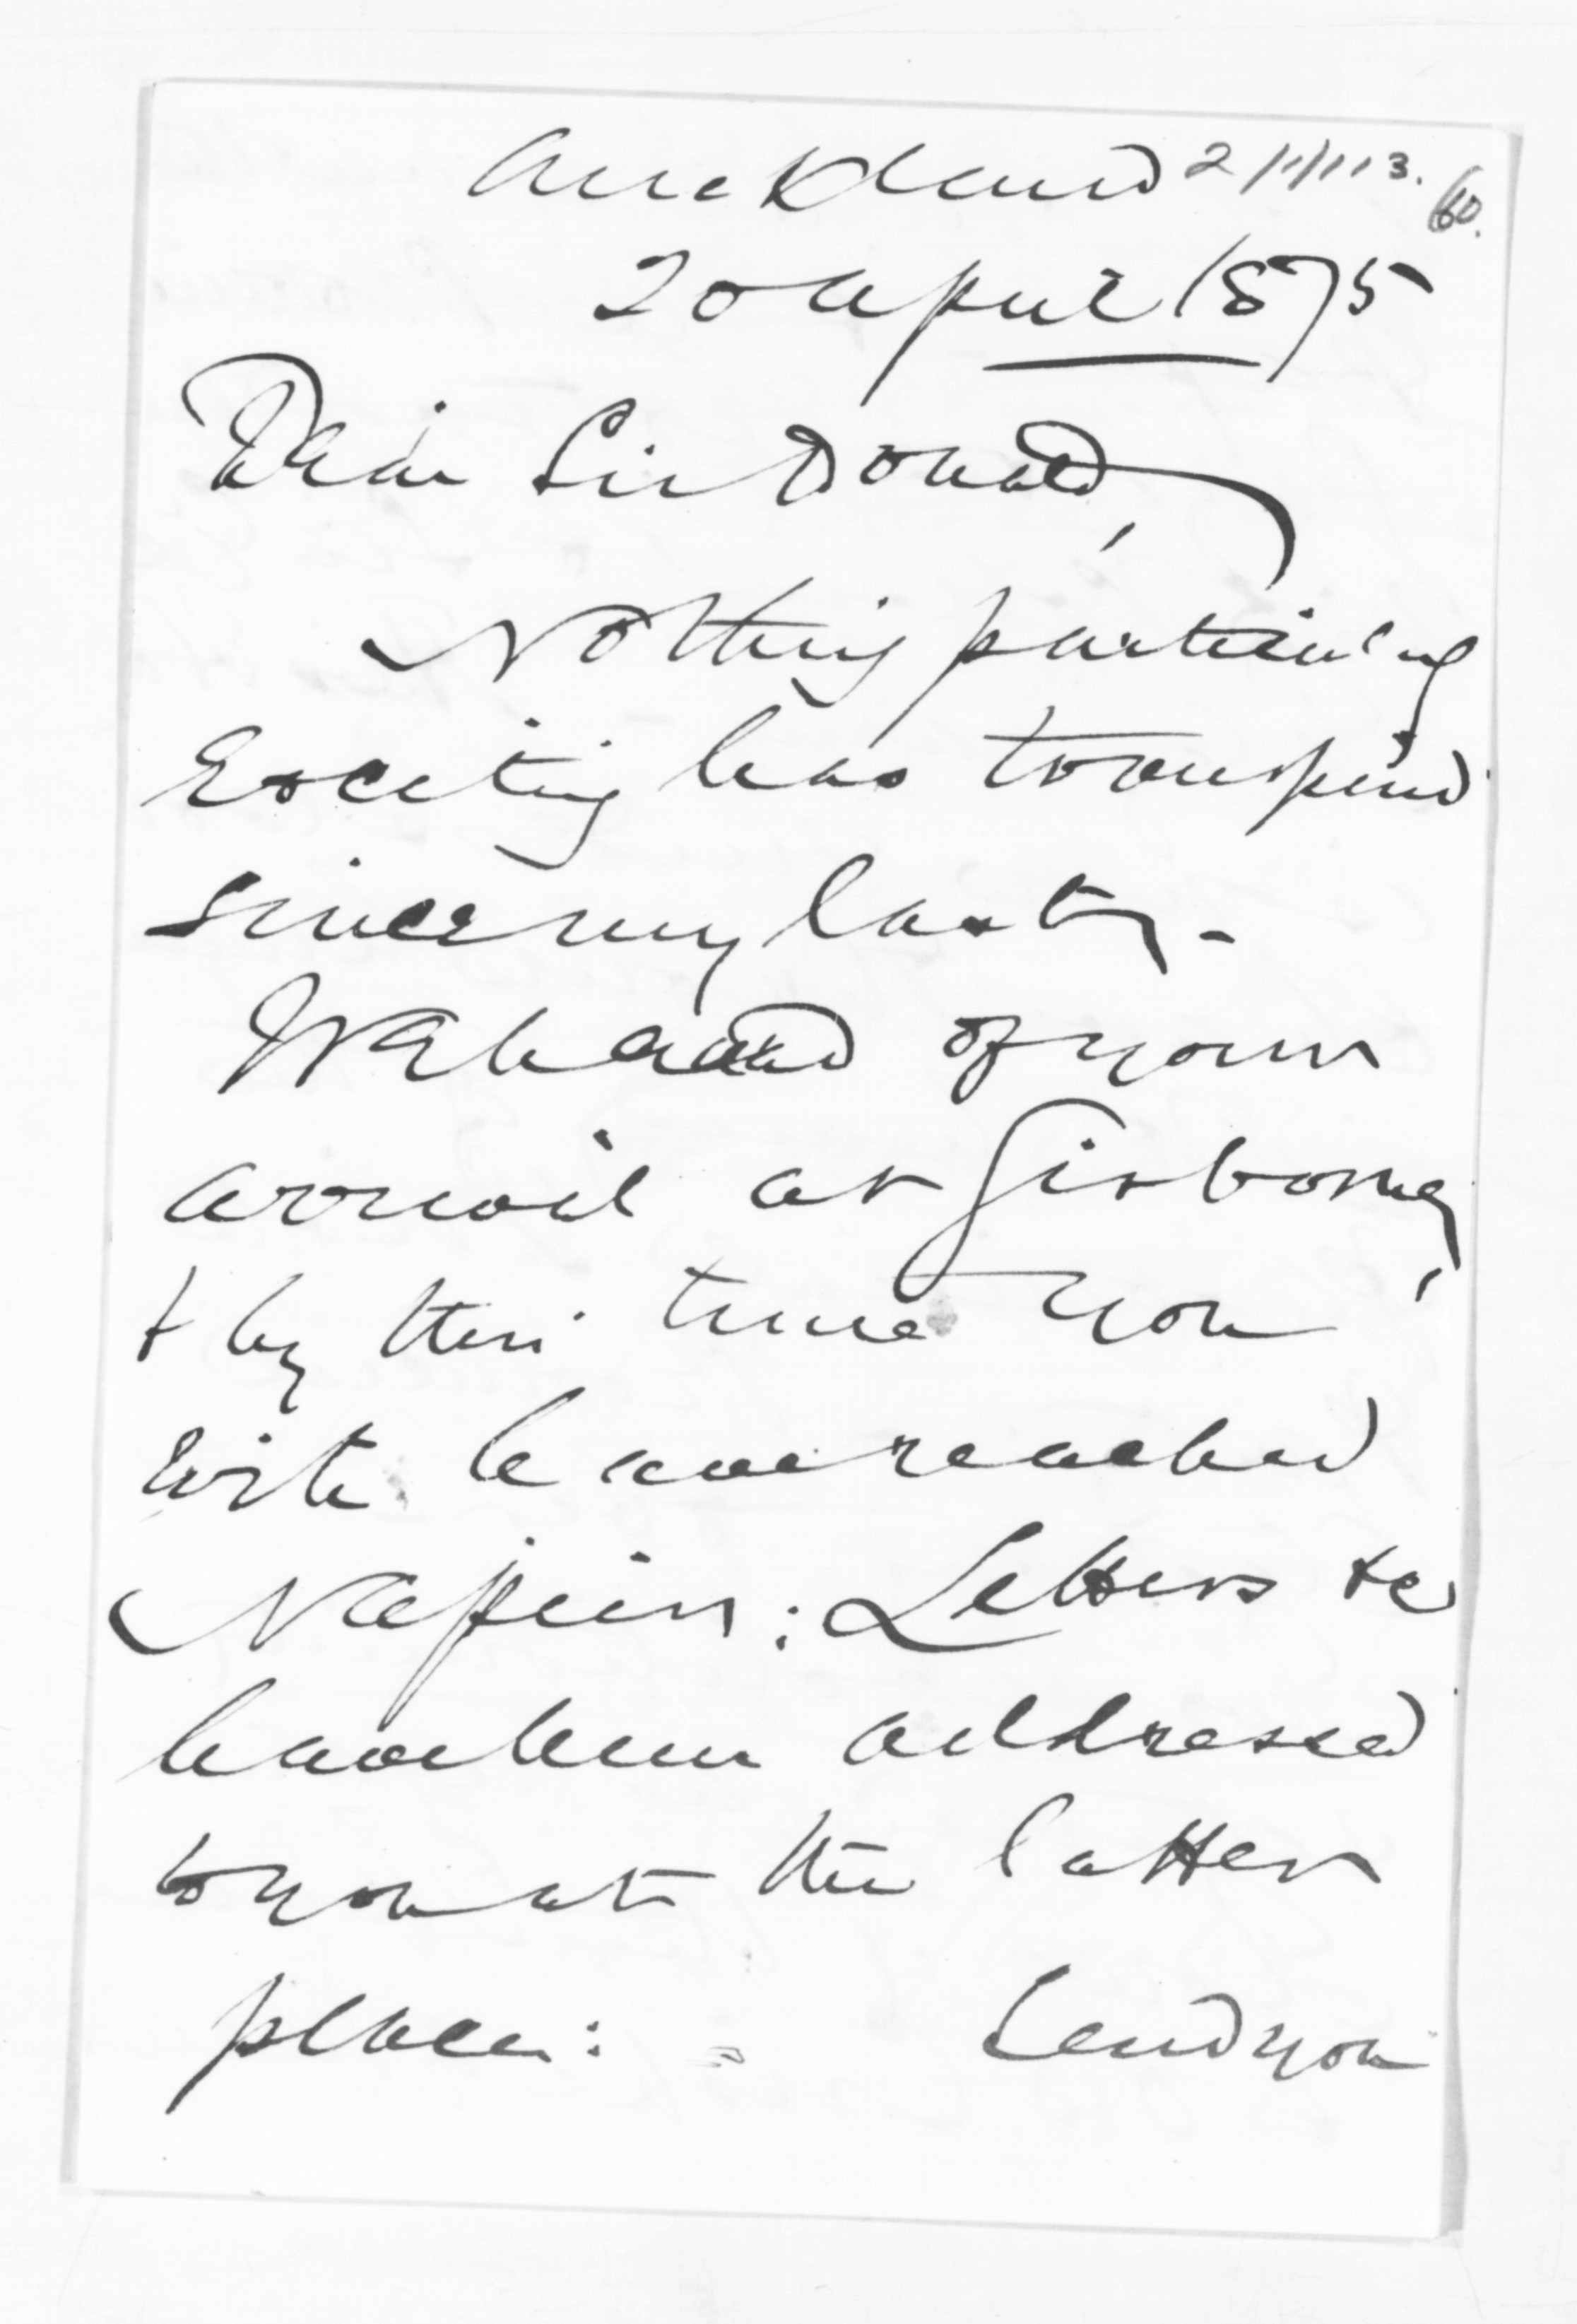 Auckland 2/11/113. 60.
20 April 1875
Dear Sir Donald,
Nothing particularly
exciting has transpired
since my last. -
We heard of your
arrival at Gisborne,
& by this time you
will have reached
Napier: Letters &c
have been addressed
to you at the latter
place: - Send you